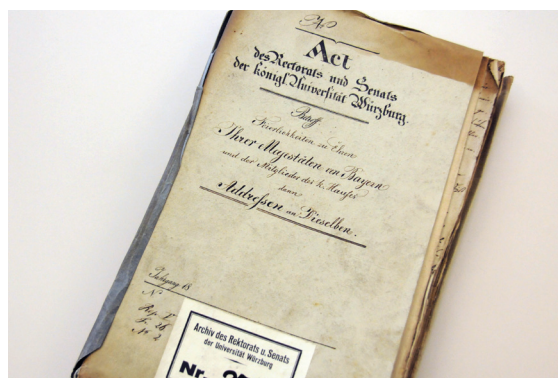 Act
des Rectorats und Senats
der königl. Universität Würzburg.
Betreff
Feierlichkeiten zu Ehren
Ihrer Majestäten von Bayern
und der Mitglieder des k. Hauses
dann
Addressen an Dieselben.
Jahrgang 18
No
Rep. V
F. 26
No 2
Archiv des Rektorats u. Senats
der Universität Würzburg
Nr.